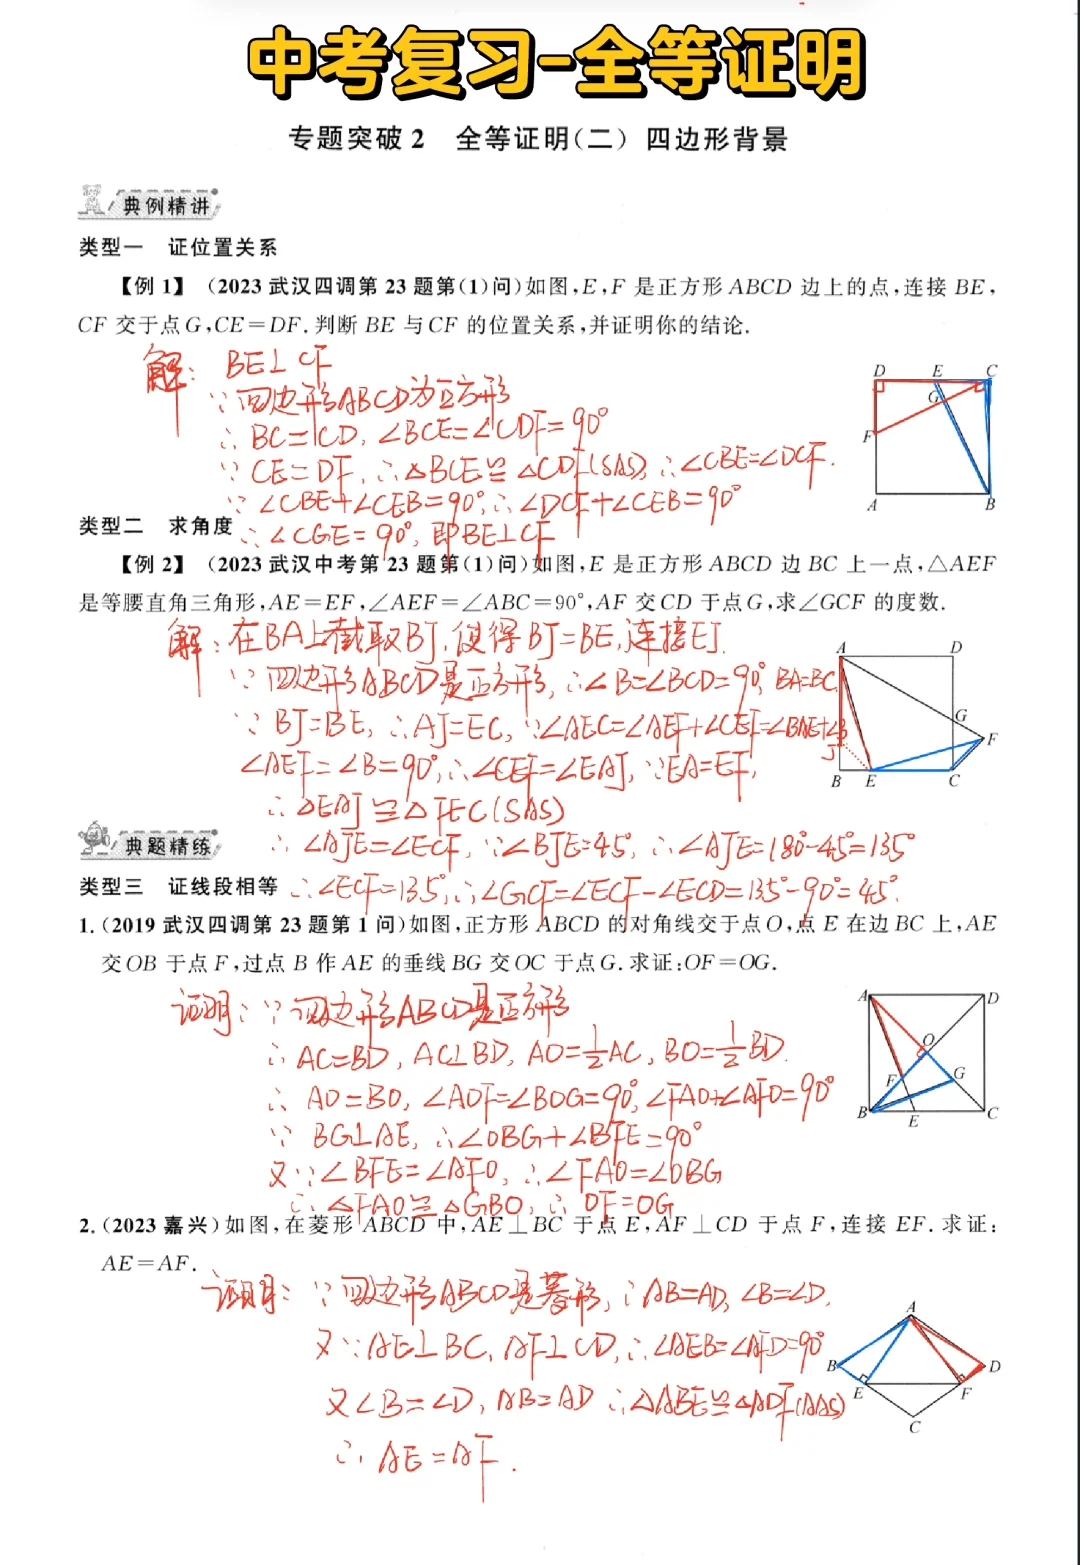 中考复习-全等证明
专题突破2 全等证明(二) 四边形背景
典例精讲
类型一 证位置关系
【例1】 (2023武汉四调第23题第(1)问)如图,E,F是正方形ABCD边上的点,连接BE,
CF交于点G,CE=DF.判断BE与CF的位置关系,并证明你的结论.
解: BE⊥CF
∵四边形ABCD为正方形
∴BC=CD, ∠BCE=∠CDF=90°
∵CE=DF, ∴△BCE≌△CDF(SAS), ∴∠CBE=∠DCF.
∵∠CBE+∠CEB=90°, ∴∠DCF+∠CEB=90°
∴∠CGE=90°, 即BE⊥CF
D E C
G
F
A B
类型二 求角度
【例2】 (2023武汉中考第23题第(1)问)如图,E是正方形ABCD边BC上一点,△AEF
是等腰直角三角形,AE=EF,∠AEF=∠ABC=90°,AF交CD于点G,求∠GCF的度数.
解:在BA上截取BJ,使得BJ=BE,连接EJ.
∵四边形ABCD是正方形, ∴∠B=∠BCD=90°, BA=BC
∵BJ=BE, ∴AJ=EC, ∵∠AEC=∠AEF+∠CEF=∠BAE+∠B
∠AEF=∠B=90°, ∴∠CEF=∠EAJ, ∵EA=EF,
∴△EAJ≌△FEC(SAS)
∴∠AJE=∠ECF, ∵∠BJE=45°, ∴∠AJE=180°-45°=135°
∴∠ECF=135°, ∴∠GCF=∠ECF-∠ECD=135°-90°=45°.
A D
G
F
J
B E C
典题精练
类型三 证线段相等
1.(2019武汉四调第23题第1问)如图,正方形ABCD的对角线交于点O,点E在边BC上,AE
交OB于点F,过点B作AE的垂线BG交OC于点G.求证:OF=OG.
证明:∵四边形ABCD是正方形
∴AC=BD, AC⊥BD, AO=½AC, BO=½BD.
∴AO=BO, ∠AOF=∠BOG=90°, ∠FAO+∠AFO=90°
∵BG⊥AE, ∴∠OBG+∠BFE=90°
又∵∠BFE=∠AFO, ∴∠FAO=∠OBG
∴△FAO≌△GBO, ∴OF=OG
A D
O
F G
B E C
2.(2023嘉兴)如图,在菱形ABCD中,AE⊥BC于点E,AF⊥CD于点F,连接EF.求证:
AE=AF.
证明:∵四边形ABCD是菱形, ∴AB=AD, ∠B=∠D.
又∵AE⊥BC, AF⊥CD, ∴∠AEB=∠AFD=90°
又∠B=∠D, AB=AD ∴△ABE≌△ADF(AAS)
∴AE=AF.
A
B D
E F
C